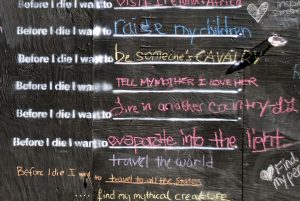 Before I die I want to VISIT Africa
inspire
Before I die I want to raise my children
Before I die I want to be someone's CAVALRY
Before I die I want to TELL MY MOTHER I LOVE HER
Before I die I want to live in another country
Before I die I want to evaporate into the light.
travel the world
Before I die I want to travel to all the states
Find my
.... find my mythical creature